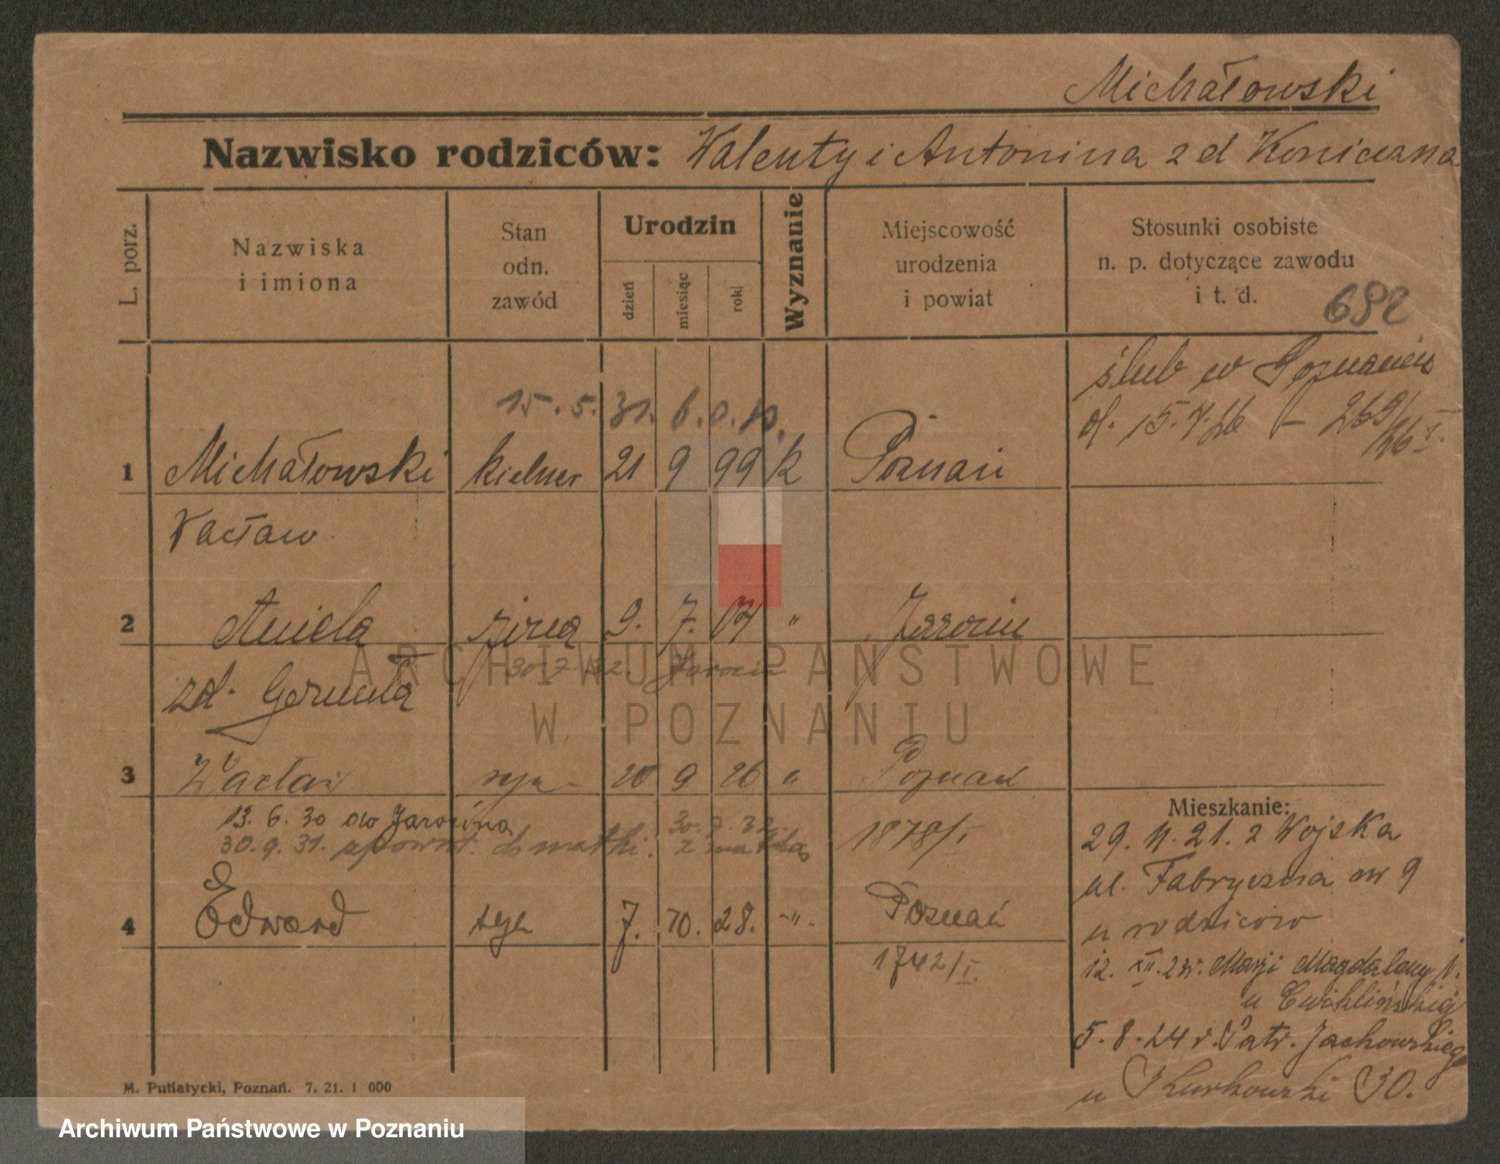 Michałowski
Nazwisko rodziców: Walenty i Antonina z d Koniczna
L. porz.
Nazwiska
i imiona
Stan
odn.
zawód
Urodzin
dzień
miesiąc
rok
Wyznanie
Miejscowość
urodzenia
i powiat
Stosunki osobiste
n. p. dotyczące zawodu
i t. d.
692
ślub w Poznaniu
15.5. 31. 6.
1 Michałowski kielner 21 9 99 k Poznań
Wacław
2 Aniela żona 9. 7. 07 " Jarocin
30.7.32. Jarocin
zd.
3 Wacław syn 20 9 26 " Poznań
13. 6. 30 do Jarocina
30.9.31. do matki.
1878/I
4 Edward syn 7. 10. 28. -"- Poznań
1742/I.
Mieszkanie:
29. 11. 21. z Wojska
ul. Fabryczna nr 9
u rodziców
12. XII. 23r. Marji Magdaleny 1.
u
5.8.24 r. Patr. Jackowskiego
u Kurkowski 30.
M. Putiatycki, Poznań. 7. 21. 1 000
ARCHIWUM PAŃSTWOWE
W POZNANIU
Archiwum Państwowe w Poznaniu